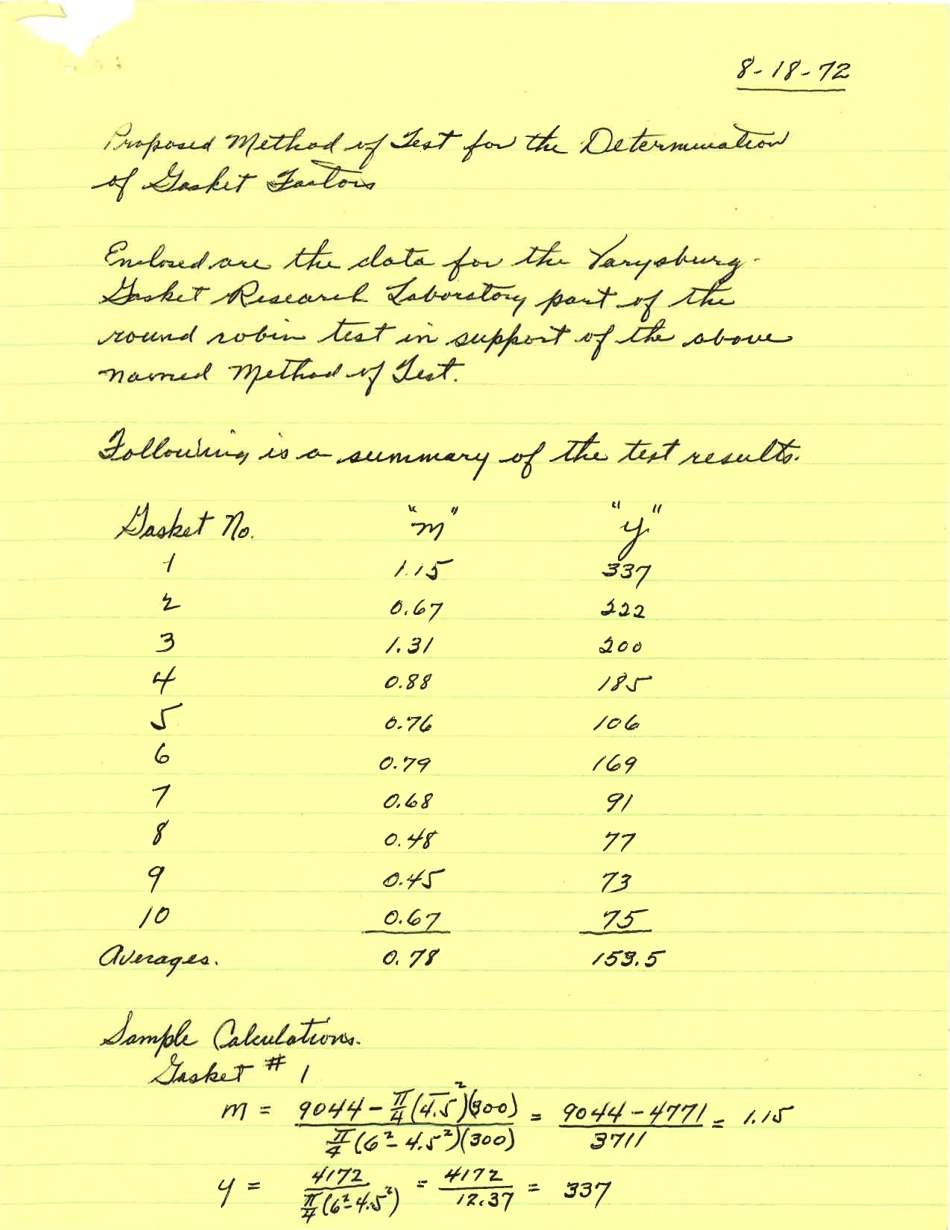 8-18-72
Proposed Method of Test for the Determination
of Gasket Factors
Enclosed are the data for the Varysburg
Gasket Research Laboratory part of the
round robin test in support of the above
named Method of Test.
Following is a summary of the test results.
Gasket No. "m" "y"
1 1.15 337
2 0.67 222
3 1.31 200
4 0.88 185
5 0.76 106
6 0.79 169
7 0.68 91
8 0.48 77
9 0.45 73
10 0.67 75
Averages. 0.78 153.5
Sample Calculations.
Gasket # 1
m = (9044 - π/4 (4.5)²(300)) / (π/4 (6² - 4.5²)(300)) = (9044 - 4771) / 3711 = 1.15
y = 4172 / (π/4 (6² - 4.5²)) = 4172 / 12.37 = 337